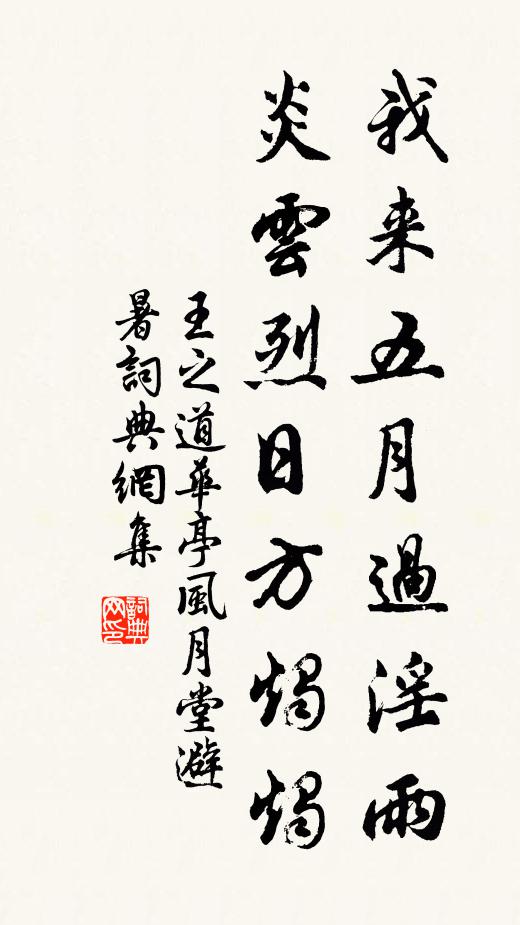 我来五月過淫雨
炎雲烈日方燭燭
王之道華亭風月堂避
暑詞典網集
詞典
网印